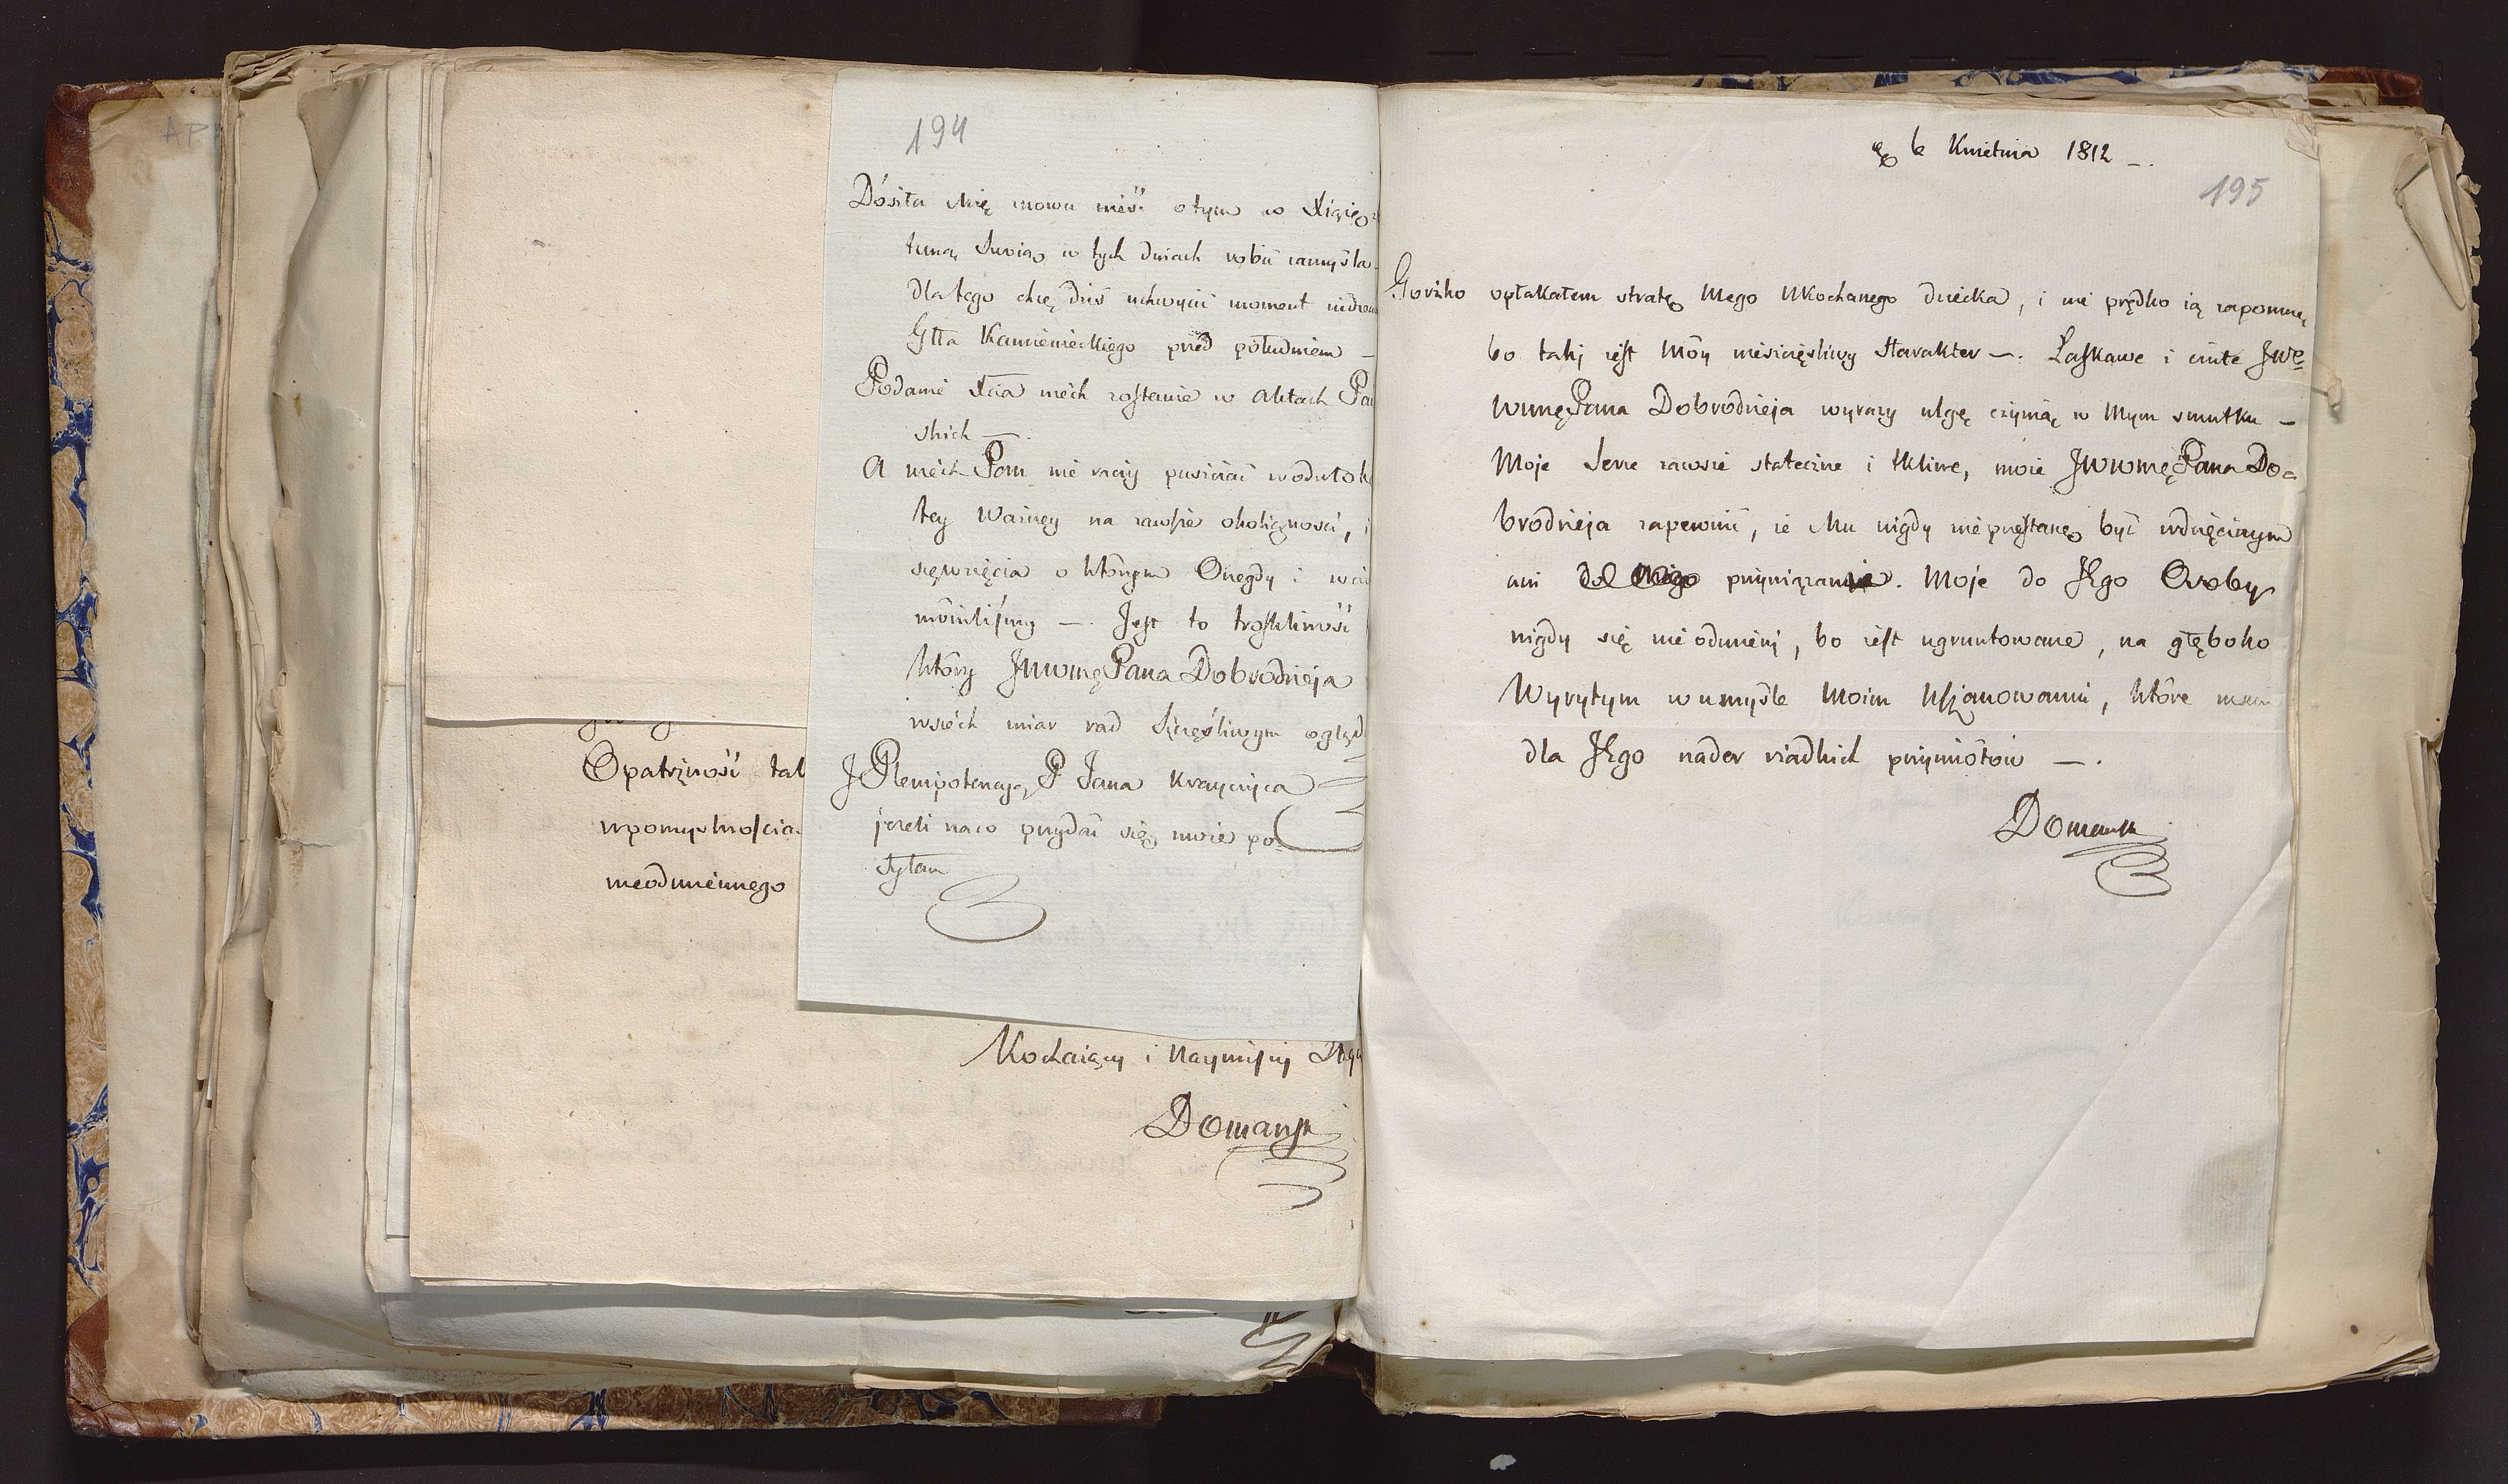 194
Dosiła Mię mowu mieś otym w Xięgo
tuną Swoią w tych dniach robić zamyśla
dla tego chcę dziś uchwycić moment
Głła Kamienieckiego przed południem —
Podanie Xcia niech zostanie w Aktach Pa
skich —.
A niech Pan nie raczy puszczać
tey Ważney na zawsze okoliczności, i
o którym Onegdy i
mówiliśmy —. Jest to troskliwość
który JWWmę Pana Dobrodzieja
wsech miar rad Szczęśliwym
J Plenipotencyą P Jana Krayczyca
jezeli naco przydać się może po
syłam
Opatrzność tak
wpomyslnościa
nieodmiennego
Kochaiący i Nayniższy Sług
Domansk
6 Kwietnia 1812 —.
195
Gorżko opłakałem stratę Mego Ukochanego dziecka, i nie prędko ią zapomnę,
bo taki iest Móy nieszczęśliwy Harakter —. Łaskawe i czułe JWo
WmęPana Dobrodzieja wyrazy ulgę czynią w Mym smutku —
Moje Serce zawsze stateczne i tkliwe, może JWWmęPana Do=
brodzieja zapewnić, że Mu nigdy nieprzestanę być wdzięcznym
ani przywiązanie. Moje do JEgo Osoby
nigdy się nieodmieni, bo iest ugruntowane, na głęboko
Wyrytym wumyśle Moim Uszanowaniu, które mam
dla JEgo nader rzadkich przymiotów —.
Domansk